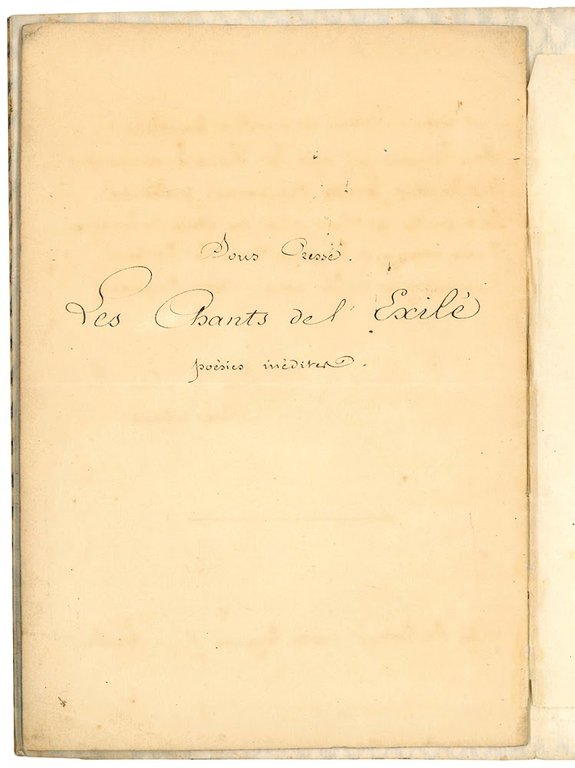 Sous Presse.
Les Chants de l'Exilé
poésies inédites.